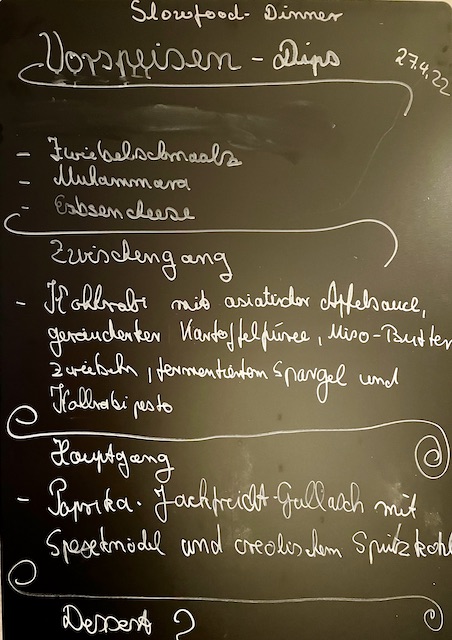 Slowfood-Dinner
Vorspeisen - Dips
27.4.22
- Zwiebelschmalz
- Muhammara
- Erbsencheese
Zwischengang
- Kohlrabi mit asiatischer Apfelsauce,
geräucherter Kartoffelpüree, Miso-Butter
zwiebeln, fermentiertem Spargel und
Kollrabipesto
Hauptgang
- Paprika-Jackfruit-Gullasch mit
und creolischem Spitzkohl
Dessert ?